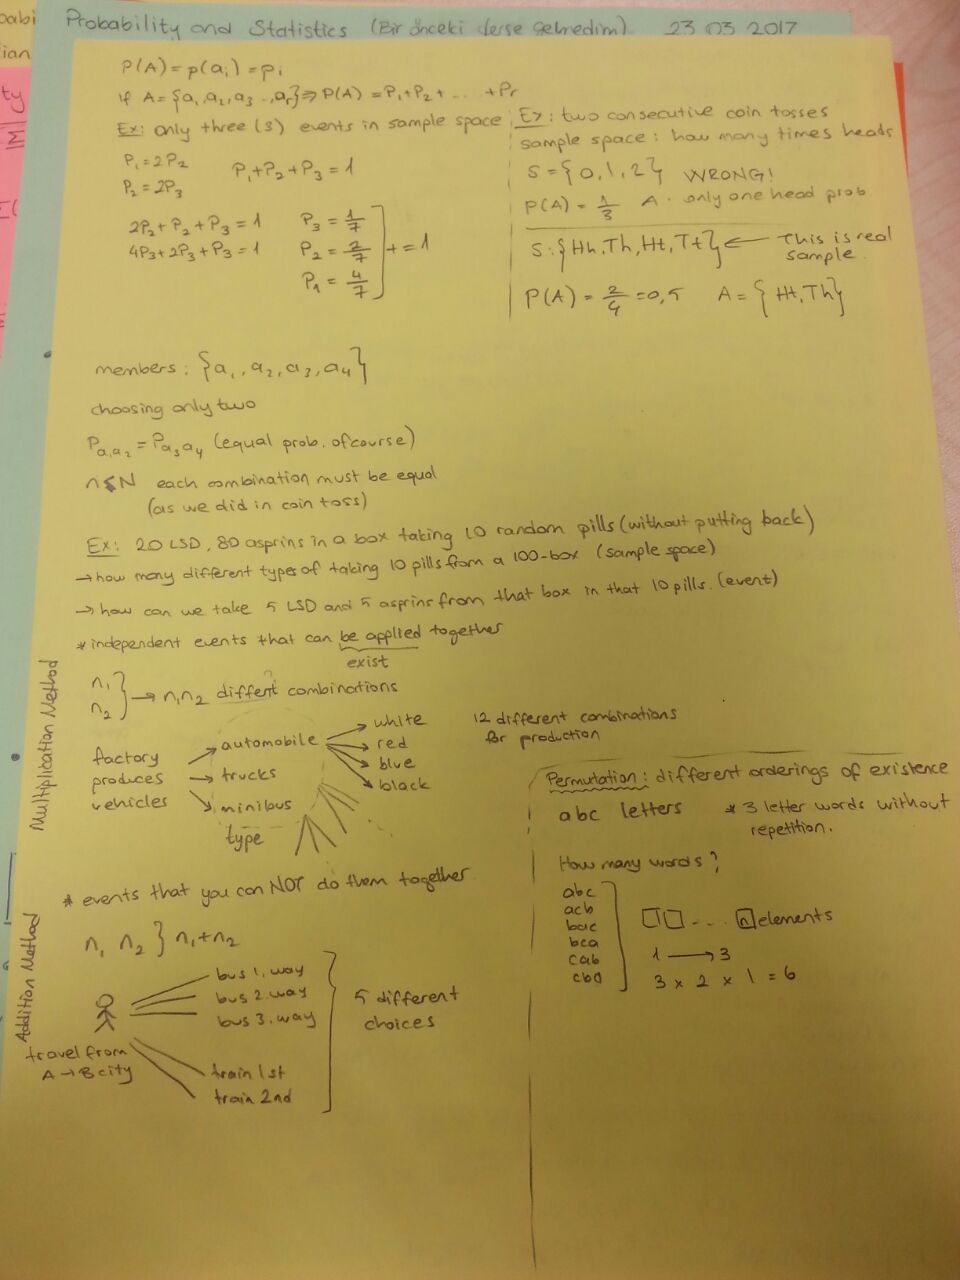 Probability and Statistics (Bir önceki derse gelmedim) 23 03 2017
P(A) = p(ai) = pi
if A = {a1, a2, a3 .., ar} ⇒ P(A) = P1+P2+ ... +Pr
Ex: only three (3) events in sample space
P1 = 2P2
P2 = 2P3
P1+P2+P3 = 1
2P2 + P2 + P3 = 1
4P3 + 2P3 + P3 = 1
P3 = 1/7
P2 = 2/7
P1 = 4/7
+ = 1
Ex: two consecutive coin tosses
sample space: how many times heads
S = {0, 1, 2} WRONG!
P(A) = 1/3 A · only one head prob
S: {Hh, Th, Ht, Tt} ← This is real
sample.
P(A) = 2/4 = 0,5 A = {Ht, Th}
members: {a1, a2, a3, a4}
choosing only two
Pa1a2 = Pa3a4 (equal prob. ofcourse)
n≤N each combination must be equal
(as we did in coin toss)
Ex: 20 LSD, 80 asprins in a box taking 10 random pills (without putting back)
→ how many different types of taking 10 pills from a 100-box (sample space)
→ how can we take 5 LSD and 5 asprins from that box in that 10 pills. (event)
* independent events that can be applied together
exist
Multiplication Method
n1
n2
→ n1n2 diffent combinations
?
factory
produces
vehicles
automobile
trucks
minibus
type
white
red
blue
black
12 different combinations
for production
* events that you can NOT do them together
Addition Method
n1 n2 } n1+n2
bus 1. way
bus 2. way
bus 3. way
train 1st
train 2nd
5 different
choices
travel from
A → B city
Permutation: different orderings of existence
abc letters * 3 letter words without
repetition.
How many words?
abc
acb
bac
bca
cab
cba
□□ ... n elements
1 → 3
3 x 2 x 1 = 6